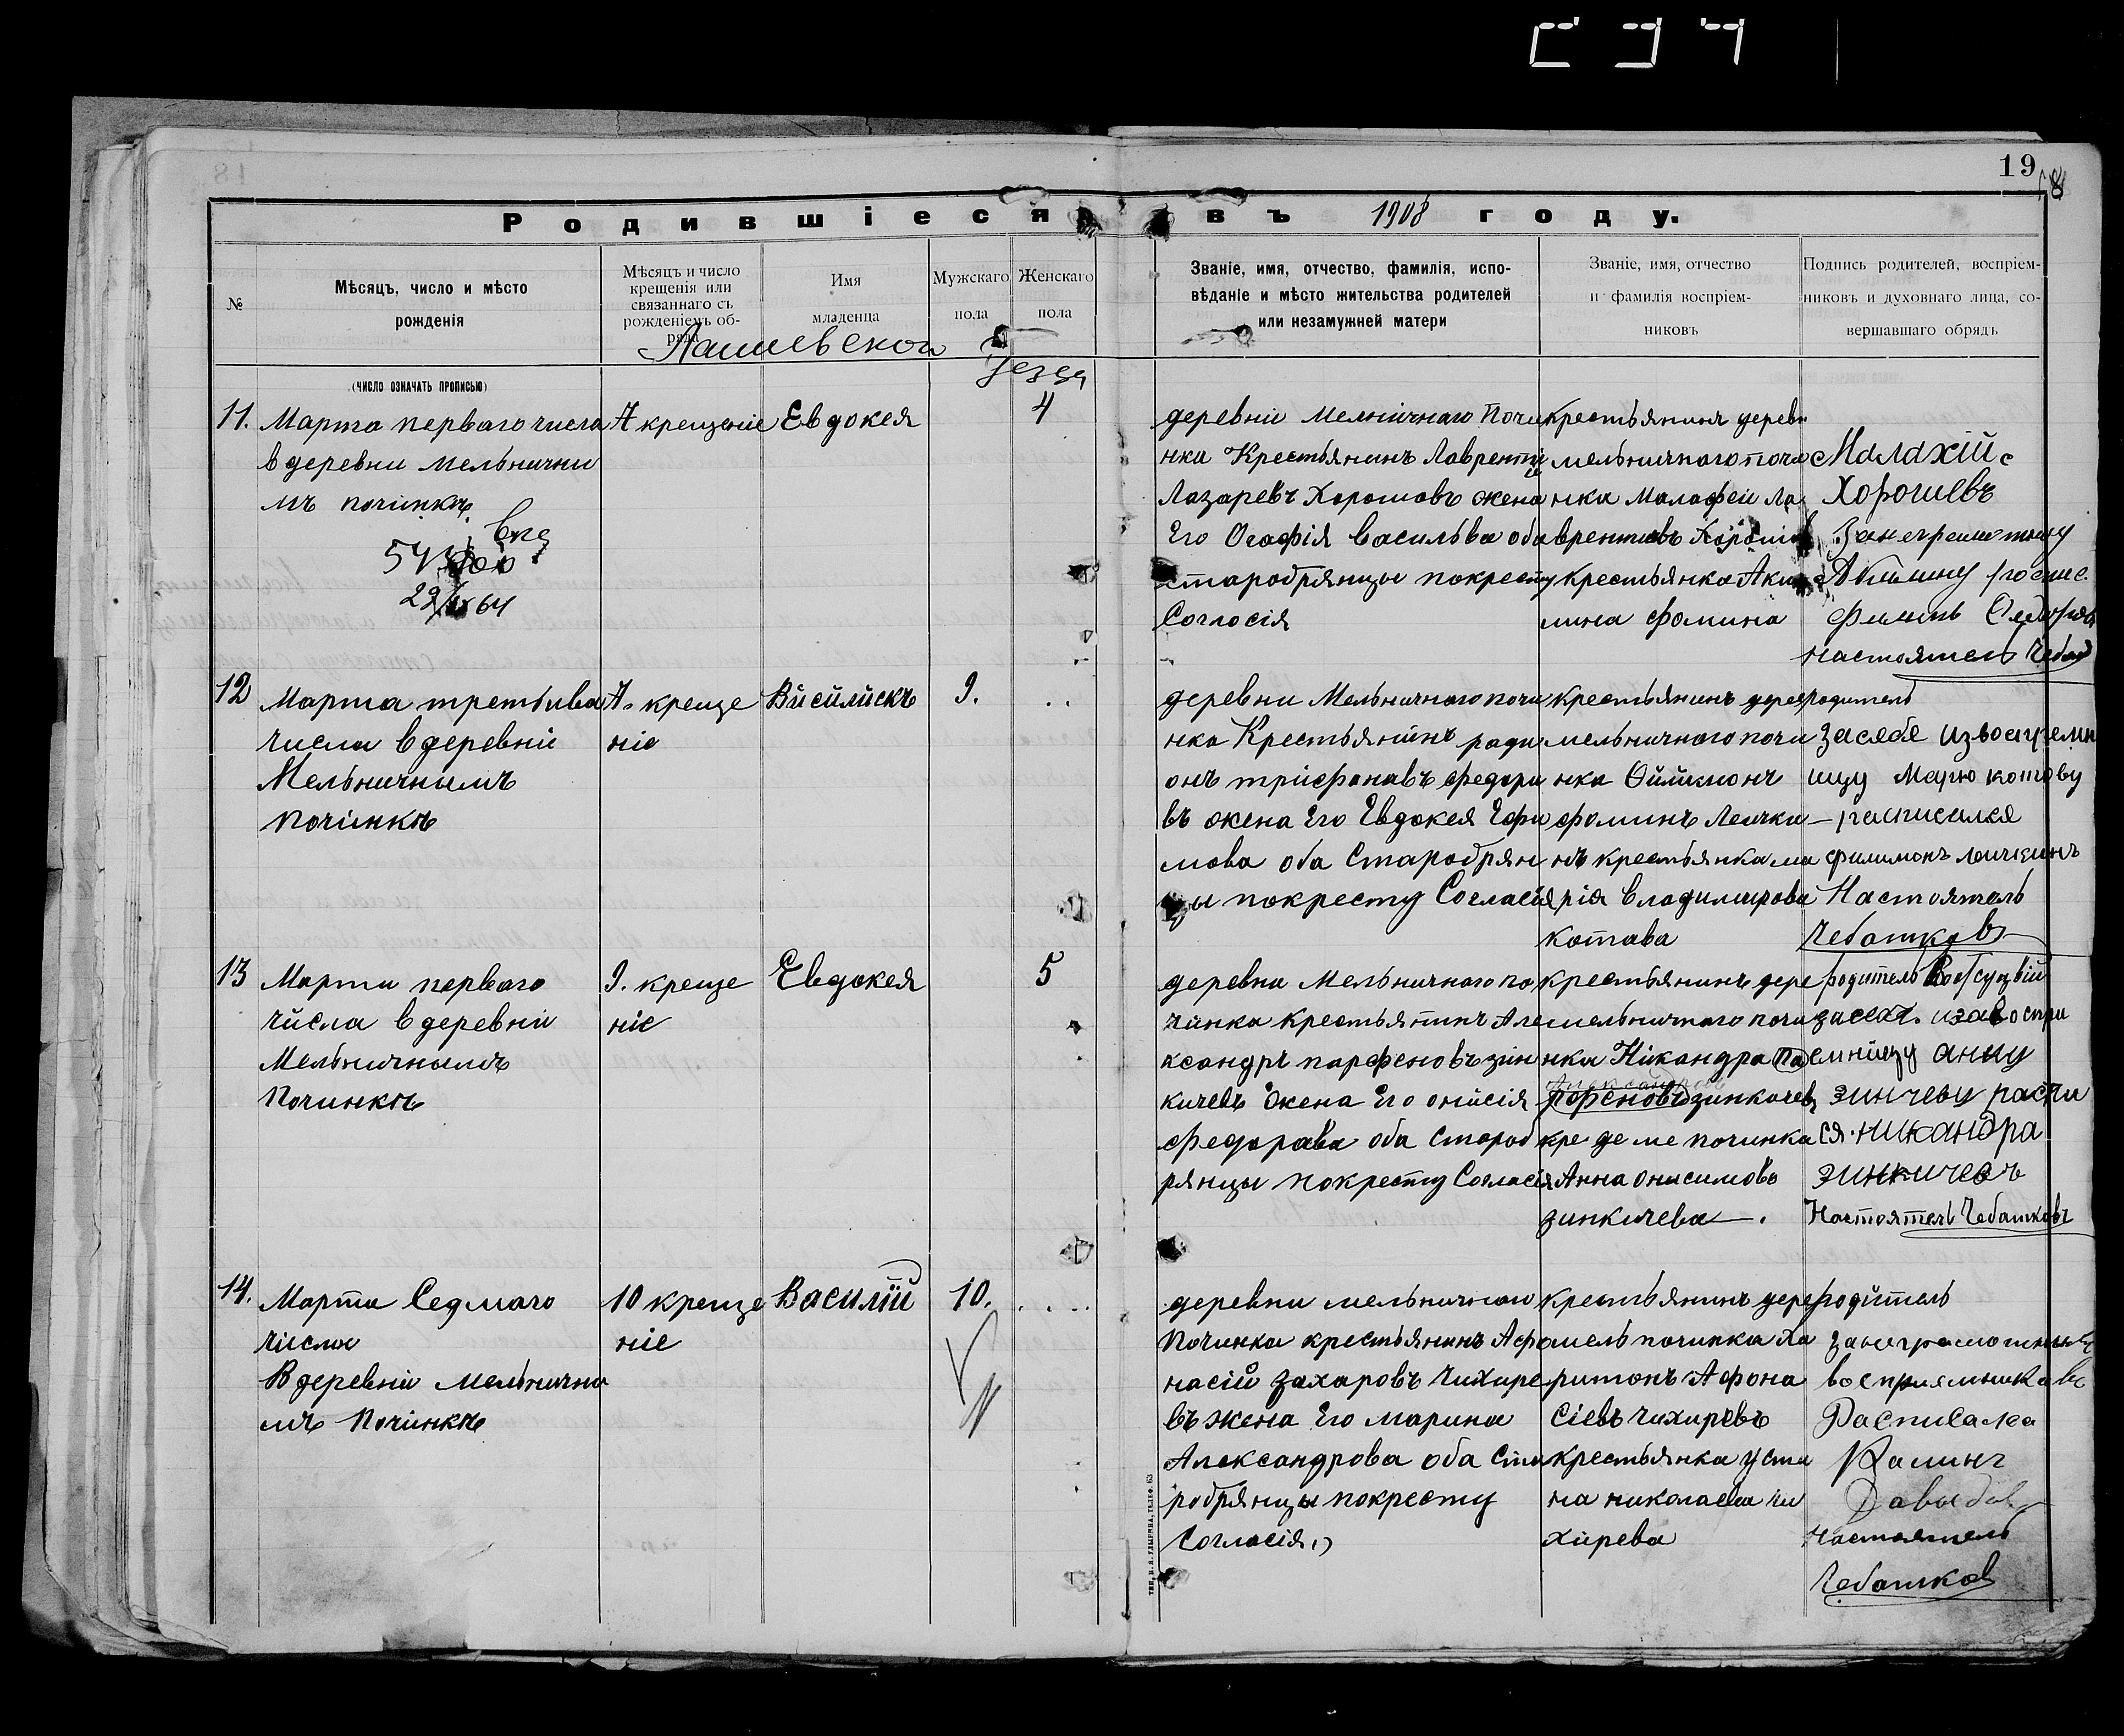 19
18
Родившіеся въ 1908 году.
№
Мѣсяцъ, число и мѣсто
рожденія
Мѣсяцъ и число
крещенія или
связаннаго съ
рожденіемъ об-
ряда
Имя
младенца
Мужскаго
пола
Женскаго
пола
Званіе, имя, отчество, фамилія, испо-
вѣданіе и мѣсто жительства родителей
или незамужней матери
Званіе, имя, отчество
и фамилія воспріем-
никовъ
Подпись родителей, воспріем-
никовъ и духовнаго лица, со-
вершавшаго обрядъ
Лаишевскои
Уезда
(число означать прописью)
11.
Марта перваго числа
в деревни мельнични
мъ починкѣ
29/IX 64
крещеніе
Евдокея
4
деревни мелничнаго Почи
нка Крестьянинъ Лаврентіи
Лазаревъ Хорошовъ жена
Его Огафія Васильва оба
старобрянцы покресту
Согласія
крестьянинъ деревн
мельничнаго почи
нка Малафеи Ла
врентиевъ Хорошо
крестьянка Аку
лина фомина
Малахій
Хорошевъ
За неграмотную
Акулину росписи
настоятель
12
Марта третьива
числа в деревніе
Мельничнымъ
Починкѣ
креще
ніе
Висилискъ
9.
деревни Мельничного почи
нка Крестьянинъ ради
онъ трифонавъ федоро
въ жена Его Евдокея Ефи
мова оба Старобрян
цы покресту Согласія
крестьянинъ дерев
мельничного почи
нка Филимонъ
фоминъ Леички
нъ крестьянка ма
рія Владимирова
котава
родитель
за себе и
ицу Марю котову
расписалсе
филимонъ
Настоятель
Чебатковъ
13
Марта перваго
числа в деревни
Мельничнымъ
Починкѣ
9. креще
ніе
Евдокея
5
деревни Мельничного по
чинка крестьянинъ Але
ксандръ парфеновъ зин
кичевъ жена Его онисія
федорава оба староб
рянцы покресту Согласія
крестьянинъ дере
мельничного почи
нка Никандра Па
Александров
рфеновъ зинкичев
кре де ме починка
Анна Онисимовъ
зинкичева
родитель
за себя и за воспри
емницу анну
зинчеву распи
ся никандра
зинкичевъ
Настоятель Чебатковъ
14.
Марта Седмаго
числа
В деревни мельнични
мъ Починкѣ
10 креще
ніе
Василій
10.
деревни мельничного
Починка крестьянинъ Афо
насій Захаровъ Чихире
въ жена Его Марина
Александрова оба ста
робрянцы покресту
Согласія
крестьянинъ дере
мель починка Ха
ритонъ Афона
сіевъ Чихиревъ
крестьянка усти
на николаева чи
хирева
родитель
за неграмотныхъ
восприямникавъ
Росписалса
Калинъ
Давыдов
Настоятель
Чебатков